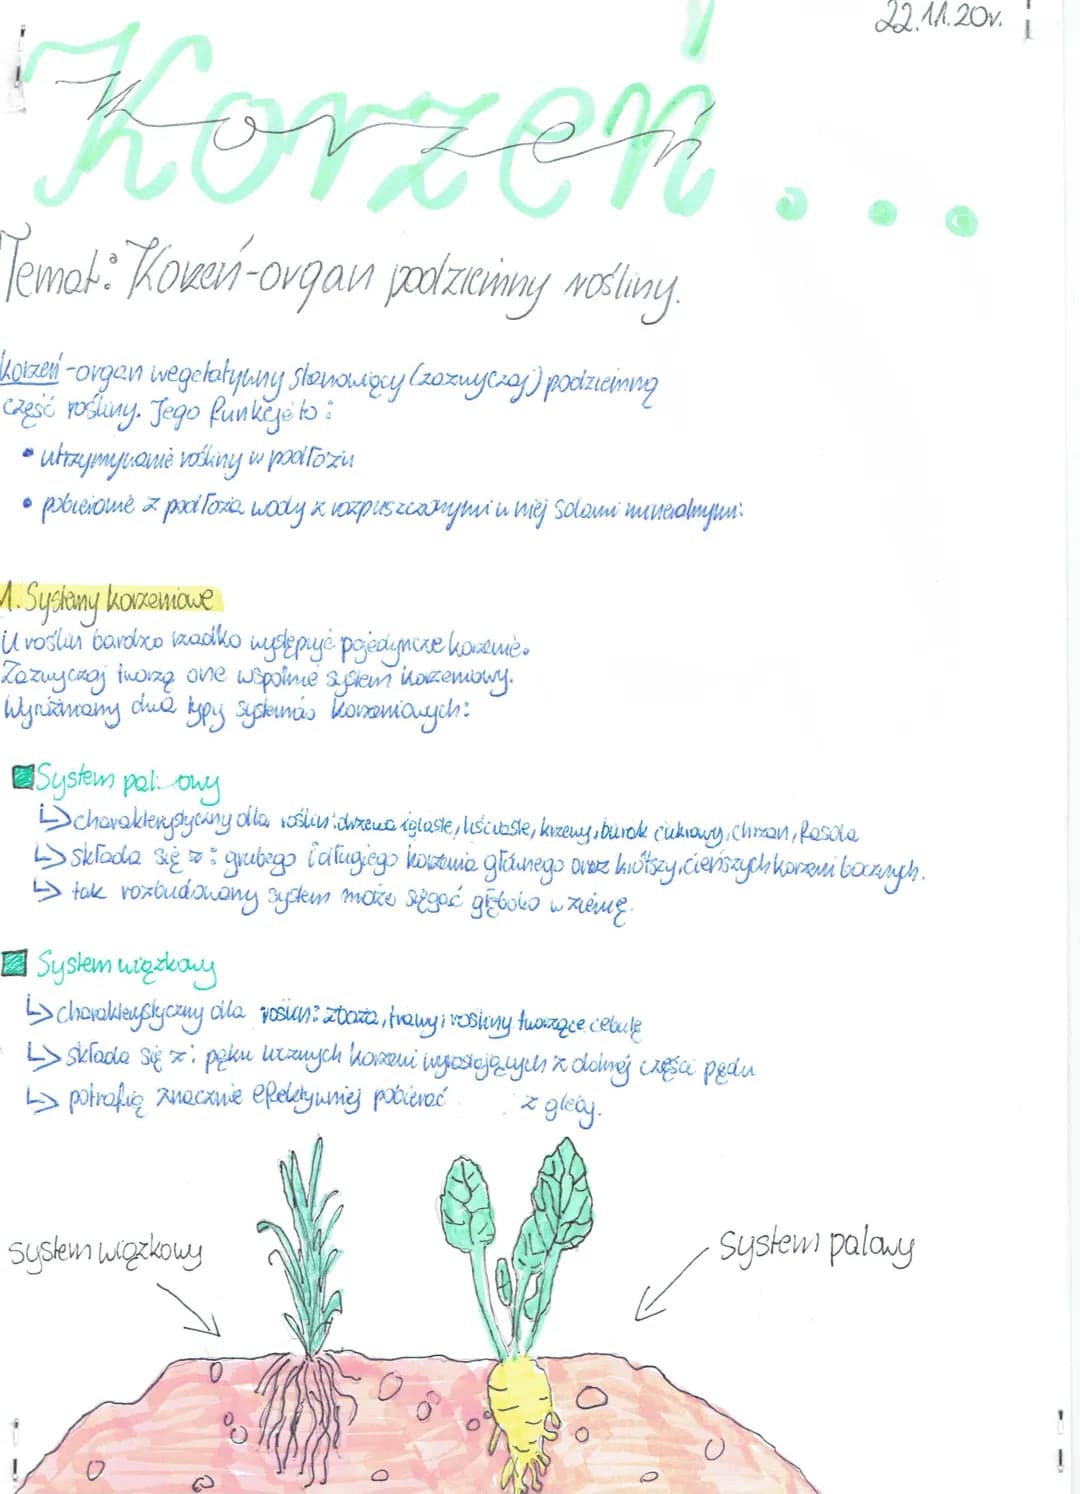 22.11.20r.
Korzeń...
Temat: Korzeń-organ podziemny rośliny.
Korzeń-organ wegetatywny stanowiący (zazwyczaj) podziemną
część rośliny. Jego funkcje to:
• utrzymywanie rośliny w podłożu
• pobieranie z podłoża wody z rozpuszczonymi w niej solami mineralnymi.
1. Systemy korzeniowe
U roślin bardzo rzadko występuje pojedyncze korzenie.
Zazwyczaj tworzą one wspólnie system korzeniowy.
Wyróżniamy dwa typy systemów korzeniowych:
System palowy
↳ charakterystyczny dla roślin: drzewa iglaste, liściaste, krzewy, burak cukrowy, chrzan, fasola
↳ składa się z: grubego i długiego korzenia głównego oraz krótszy, cieńszych korzeni bocznych.
↳ tak rozbudowany system może sięgać głęboko w ziemię.
System wiązkowy
↳ charakterystyczny dla roślin: zboża, trawy i rośliny tworzące cebulę
↳ składa się z: pęku licznych korzeni wyrastających z dolnej części pędu
↳ potrafią znacznie efektywniej pobierać z gleby.
system wiązkowy
System palowy